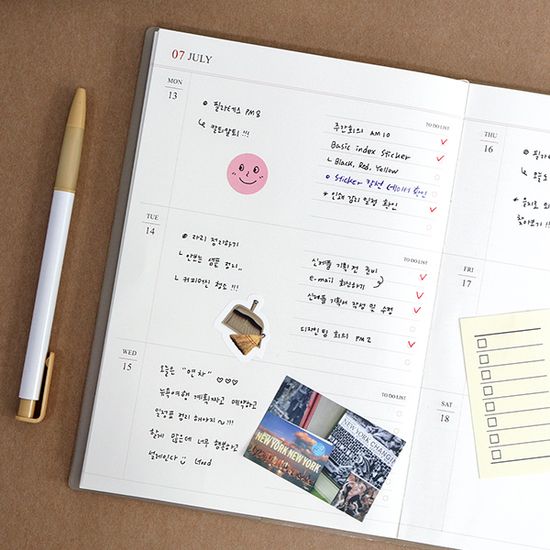 07 JULY
MON
13
필라테스 PM 8
↳ 칼퇴할퇴 !!!
TO DO LIST
주간회의 AM 10
Basic index sticker
↳ Black, Red, Yellow
Sticker 감전 데이터 확인
신예 감리 일정 확인
TUE
14
자리 정리하기
↳ 안쓰는 샘플 정리..
↳ 커피머신 청소 !!!
TO DO LIST
신제품 기획전 준비
e-mail 회신하기
신제품 기획서 작성 및 수정
디자인팀 회의 PM 2
WED
15
오늘은 "연차" ♡♡♡
뉴욕여행 계획짜고 예약하고
일정표 정리 해야지~!!!
할게 많은데 너무 행복하고
설레인다 Good
TO DO LIST
NEW YORK NEW YORK
NEW YORK
THU
16
FRI
17
SAT
18